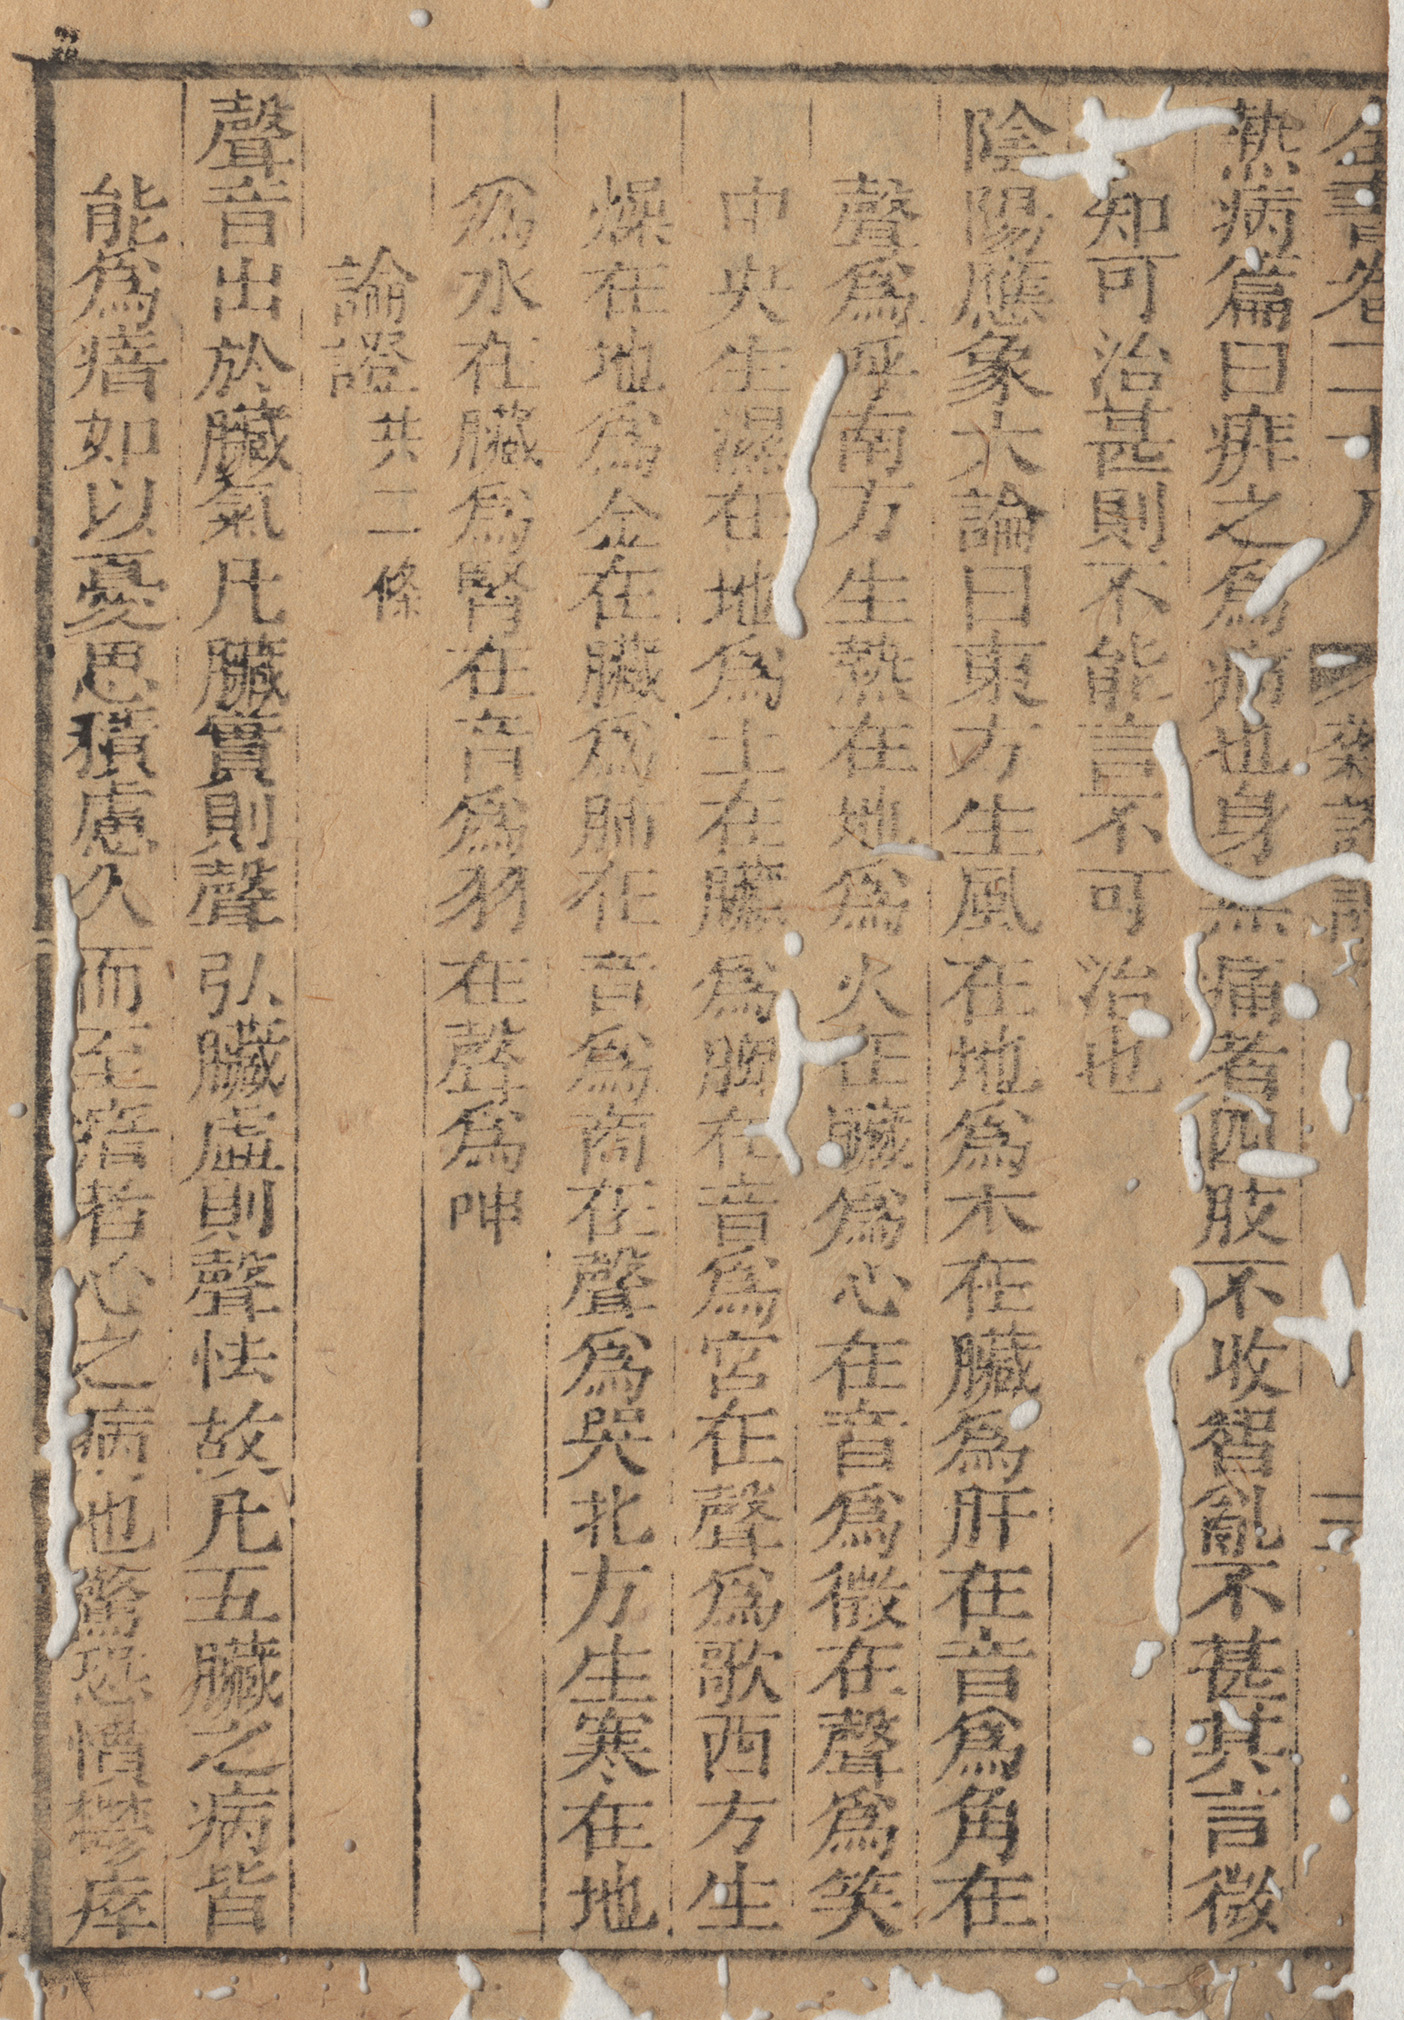 全書卷二十八 雜證 三
熱病篇曰痱之為病也身無痛者四肢不收智亂不甚其言微
知可治甚則不能言不可治也
陰陽應象大論曰東方生風在地為木在臟為肝在音為角在
聲為呼南方生熱在地為火在臟為心在音為徵在聲為笑
中央生濕在地為土在臟為脾在音為宮在聲為歌西方生
燥在地為金在臟為肺在音為商在聲為哭北方生寒在地
為水在臟為腎在音為羽在聲為呻
論證共二條
聲音出於臟氣凡臟實則聲弘臟虛則聲怯故凡五臟之病皆
能為瘖如以憂思積慮久而至瘖者心之病也驚恐憤鬱瘁